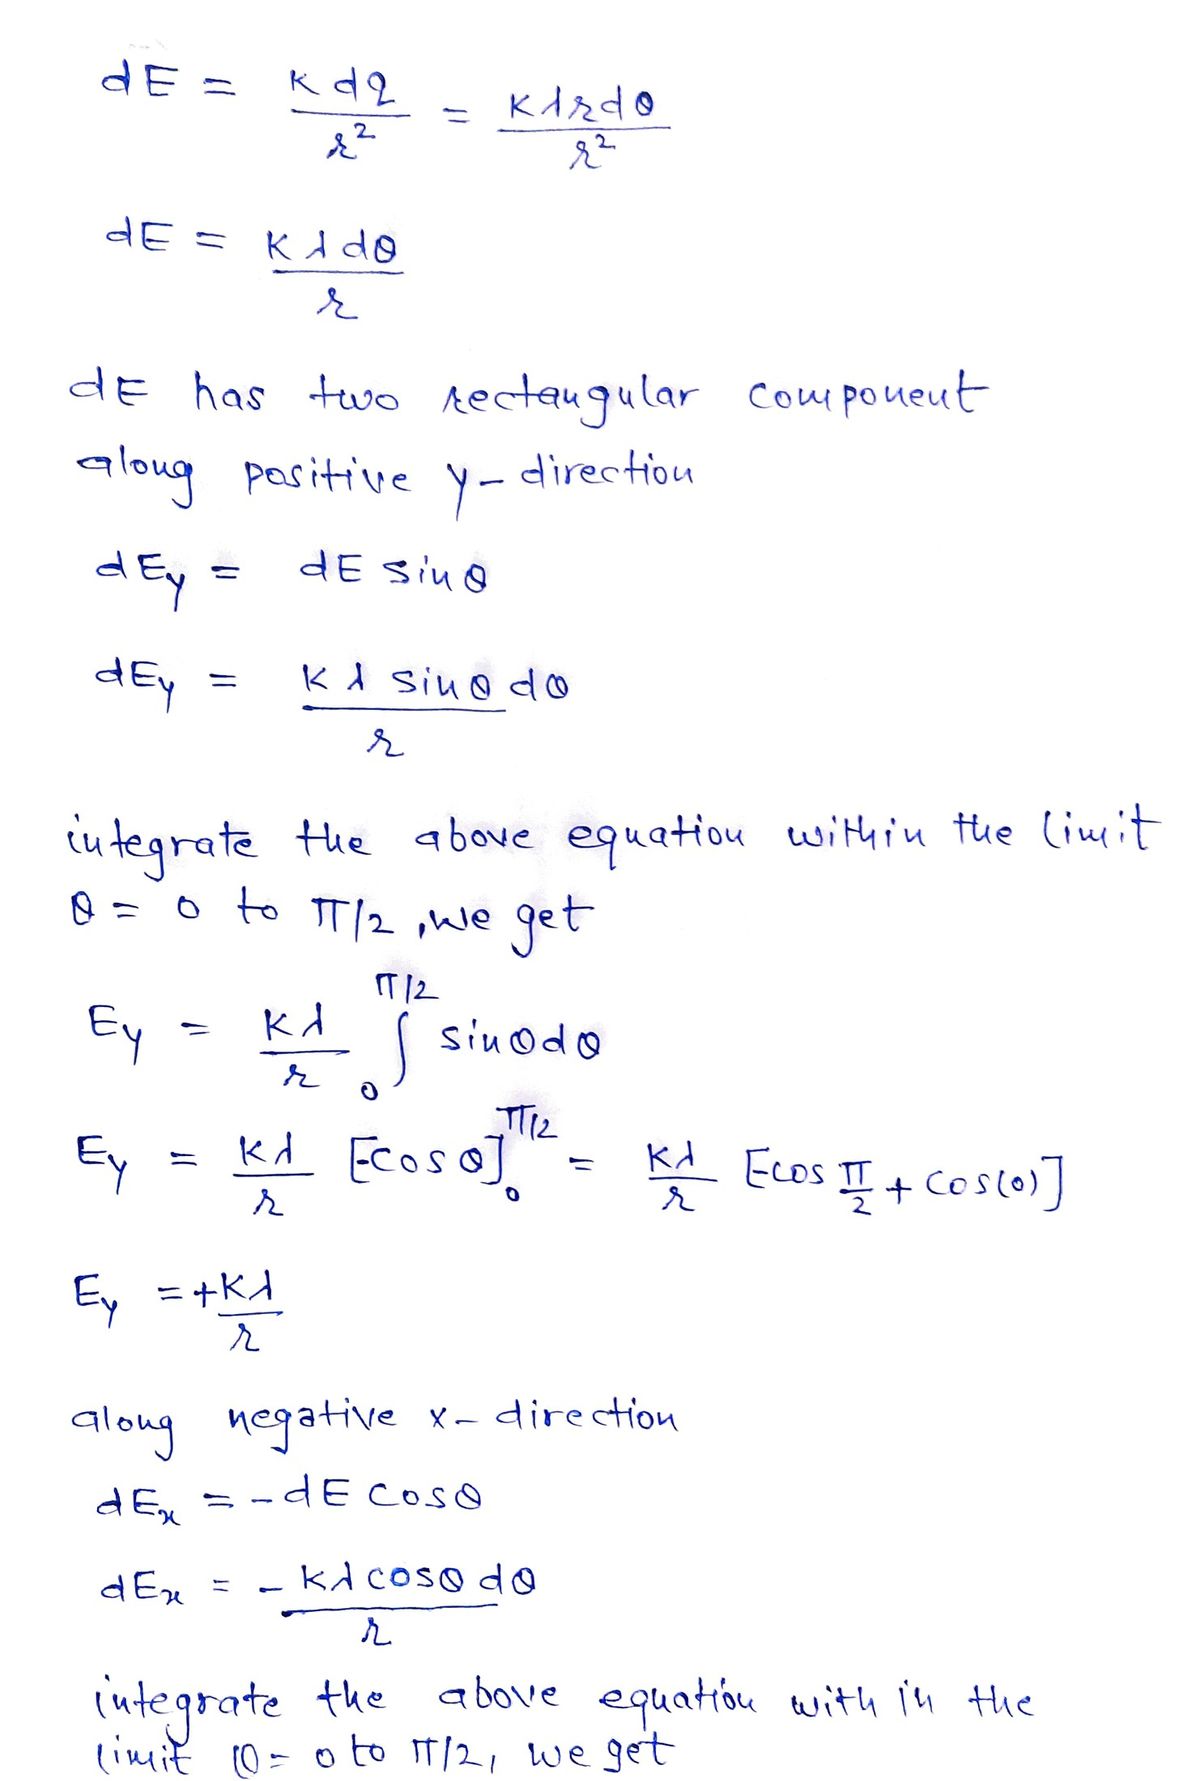 dE = K dq / r² = Kλrdθ / r²
dE = Kλdθ / r
dE has two rectangular component
along positive y-direction
dEy = dE sinθ
dEy = Kλ sinθ dθ / r
integrate the above equation within the limit
θ = 0 to π/2, we get
Ey = Kλ / r ∫₀^π/2 sinθdθ
Ey = Kλ / r [-cosθ]₀^π/2 = Kλ / r [-cos π/2 + cos(0)]
Ey = +Kλ / r
along negative x-direction
dEx = -dE cosθ
dEx = - Kλcosθ dθ / r
integrate the above equation with in the
limit θ = 0 to π/2, we get